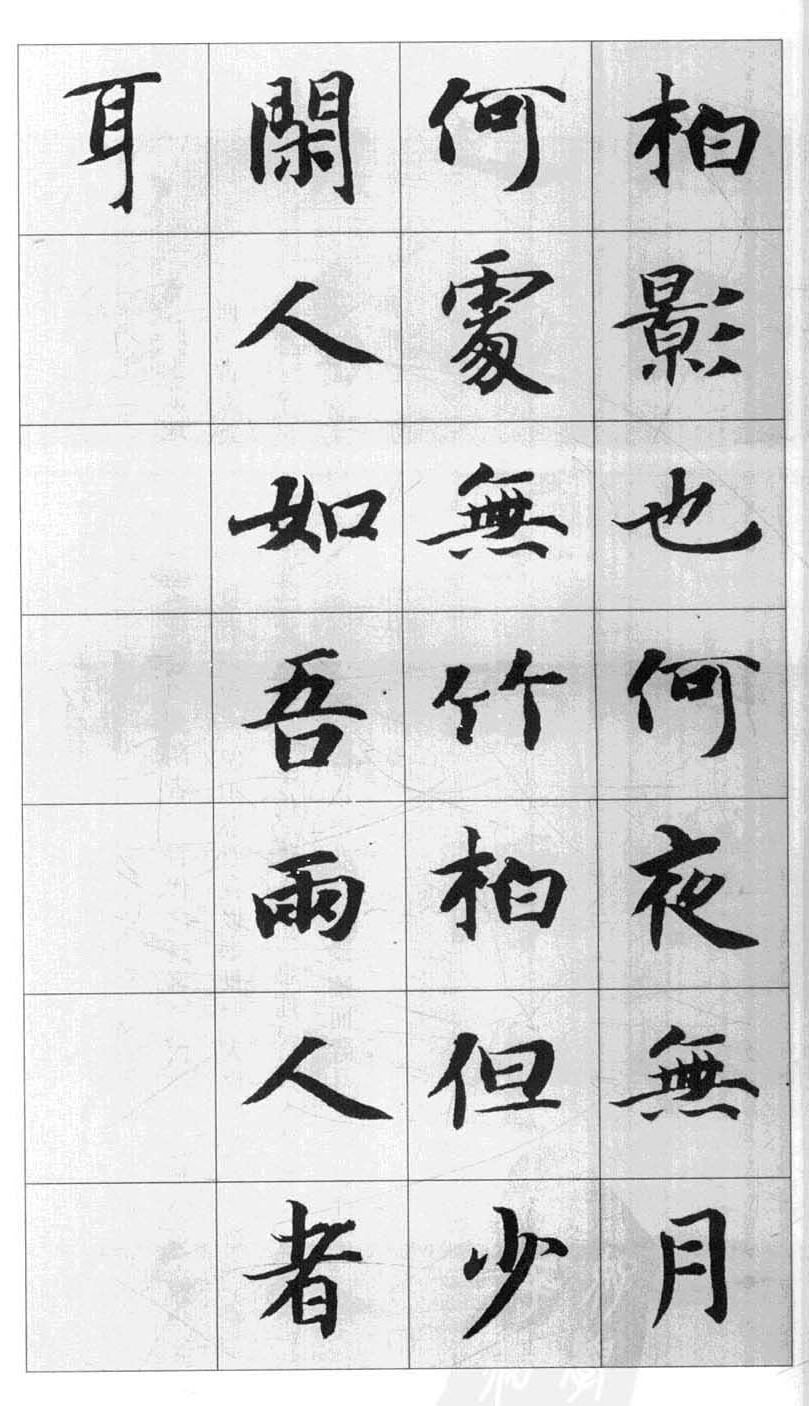 柏影也何夜無月
何處無竹柏但少
閑人如吾兩人者
耳